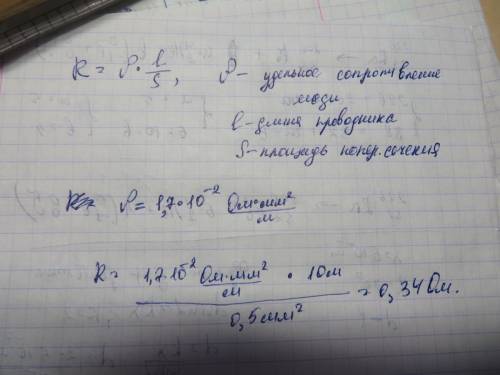 R = ρ · l/S, ρ - удельное сопротивление
меди
l - длина проводника
S - площадь попер. сечения
ρ = 1,7·10⁻² Ом·мм²/м
R = (1,7·10⁻² Ом·мм²/м · 10м)/(0,5мм²) = 0,34 Ом.